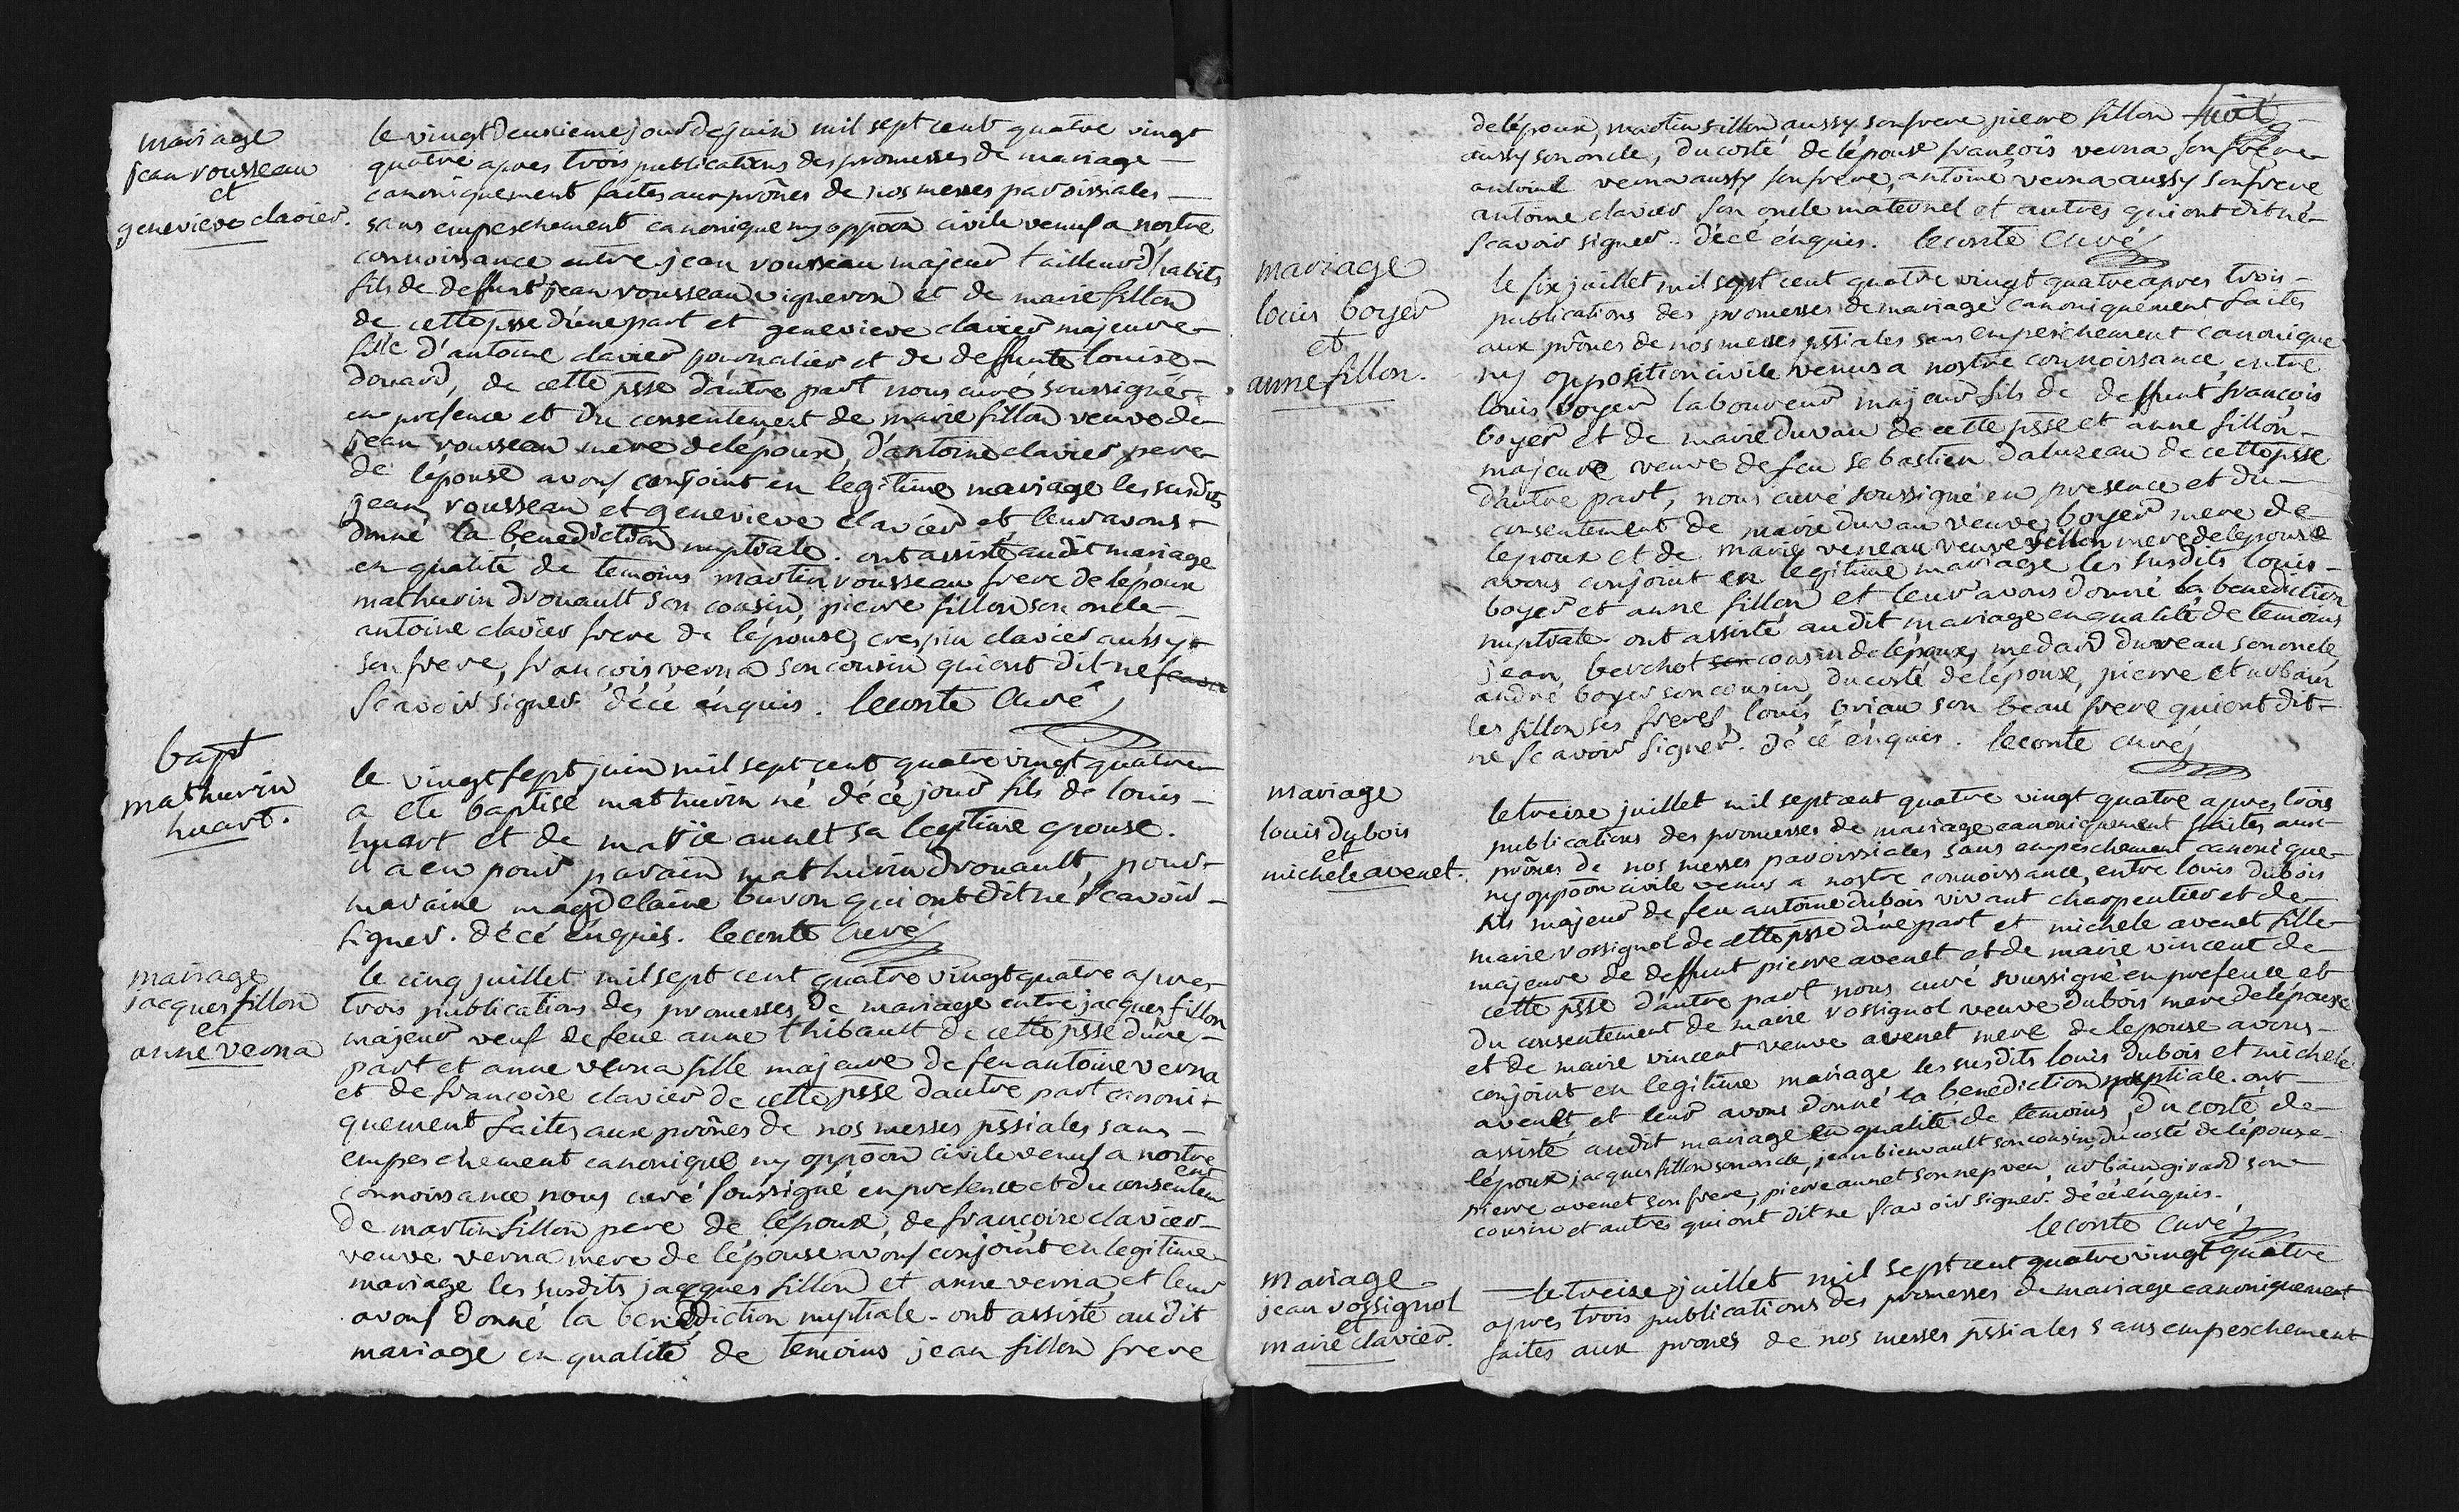 mariage
jean rousseau
et
genevieve clavier.
le vingt deuxieme jour de juin mil sept cent quatre vingt
quatre apres trois publications des promesses de mariage
canoniquement faites aux prônes de nos messes paroissiales
sans empeschement canonique ny oppõon civile venus a nostre
connoissance entre jean rousseau majeur tailleur d'habits
fils de deffunt jean rousseau vigneron et de marie fillon
de cette psse d'une part et genevieve clavier majeure
fille d'antoine clavier journalier et de deffunte louise
douard, de cette psse d'autre part nous curé soussigné
en presence et du consentement de marie fillon veuve de
jean rousseau mere de lépoux, d'antoine clavier pere
de l'épouse avons conjoint en legitime mariage les susdits
jean rousseau et genevieve clavier et leur avons
donné la benediction nuptiale. ont assisté audit mariage
en qualité de temoins martin rousseau frere de lépoux
mathurin drouault son cousin, pierre fillon son oncle
antoine clavier frere de lépouse, crespin clavier aussy
son frere, françois verna son cousin qui ont dit ne scavoir
scavoir signer. de ce enquis. leconte curé
bapt
mathurin
huart.
le vingt sept juin mil sept cent quatre vingt quatre
a ete baptisé mathurin né de ce jour fils de louis
huart et de marie aunet sa legitime epouse.
il a eu pour parain mathurin drouault, pour
maraine magdelaine buron qui ont dit ne scavoir
signer. de ce enquis. leconte curé
mariage
jacques fillon
et
anne verna
le cinq juillet mil sept cent quatre vingt quatre apres
trois publications des promesses de mariage entre jacques fillon
majeur veuf de feue anne thibault de cette psse d'une
part et anne verna fille majeure de feu antoine verna
et de françoise clavier de cette psse d'autre part canoni
quement faites aux prônes de nos messes pssiales sans
empeschement canonique ny oppõon civile venus a nostre
connoissance, nous curé soussigné en presence et du consentement
de martin fillon pere de lépoux, de françoise clavier
veuve verna mere de lépouse avons conjoint en legitime
mariage les susdits jacques fillon et anne verna, et leur
avons donné la benediction nuptiale. ont assisté audit
mariage en qualité de temoins jean fillon frere
huit
de lépoux, martin fillon aussy son frere pierre fillon
aussy son oncle, du costé de lépouse françois verna son frere
antoine verna aussy son frere, antoine verna aussy son frere
antoine clavier son oncle maternel et autres qui ont dit ne
scavoir signer. de ce enquis. leconte curé
mariage
louis boyer
et
anne fillon.
le six juillet mil sept cent quatre vingt quatre apres trois
publications des promesses de mariage canoniquement faites
aux prônes de nos messes pssiales sans empeschement canonique
ny opposition civile venus a nostre connoissance, entre
louis boyer laboureur majeur fils de deffunt françois
boyer et de marie duvau de cette psse et anne fillon
majeure veuve de feu sebastien daluzeau de cette psse
d'autre part, nous curé soussigné en presence et du
consentement de marie duvau veuve boyer mere de
lepoux et de marie veneau veuve fillon mere de lepouse
avons conjoint en legitime mariage les susdits louis
boyer et anne fillon et leur avons donné la benediction
nuptiale ont assisté audit mariage en qualité de temoins
jean berchot son cousin de lépoux, medard duveau son oncle
andré boyer son cousin, du costé de lépouse, pierre et urbain
les fillon ses freres, louis briau son beau frere qui ont dit
ne scavoir signer. de ce enquis. leconte curé
mariage
louis dubois
et
michele avenet.
le treize juillet mil sept cent quatre vingt quatre apres trois
publications des promesses de mariage canoniquement faites aux
prônes de nos messes paroissiales sans empeschement canonique
ny oppõon civile venus a nostre connoissance, entre louis dubois
fils majeur de feu antoine dubois vivant charpentier et de
marie rossignol de cette psse d'une part et michele avenet fille
majeure de deffunt pierre avenet et de marie vincent de
cette psse d'autre part nous curé soussigné en presence et
du consentement de marie rossignol veuve dubois mere de lépoux
et de marie vincent veuve avenet mere de lepouse avons
conjoint en legitime mariage les susdits louis dubois et michele
avenet et leur avons donné la benediction nuptiale. ont
assisté audit mariage en qualité de temoins, du costé de
lépoux jacques fillon son oncle, jean bienvault son cousin, du costé de lépouse
pierre avenet son frere, pierre aunet son nepveu, urbain girard son
cousin et autres qui ont dit ne scavoir signer. de ce enquis.
leconte curé
mariage
jean rossignol
et
marie clavier.
le treize juillet mil sept cent quatre vingt quatre
apres trois publications des promesses de mariage canoniquement
faites aux prones de nos messes pssiales sans empeschement